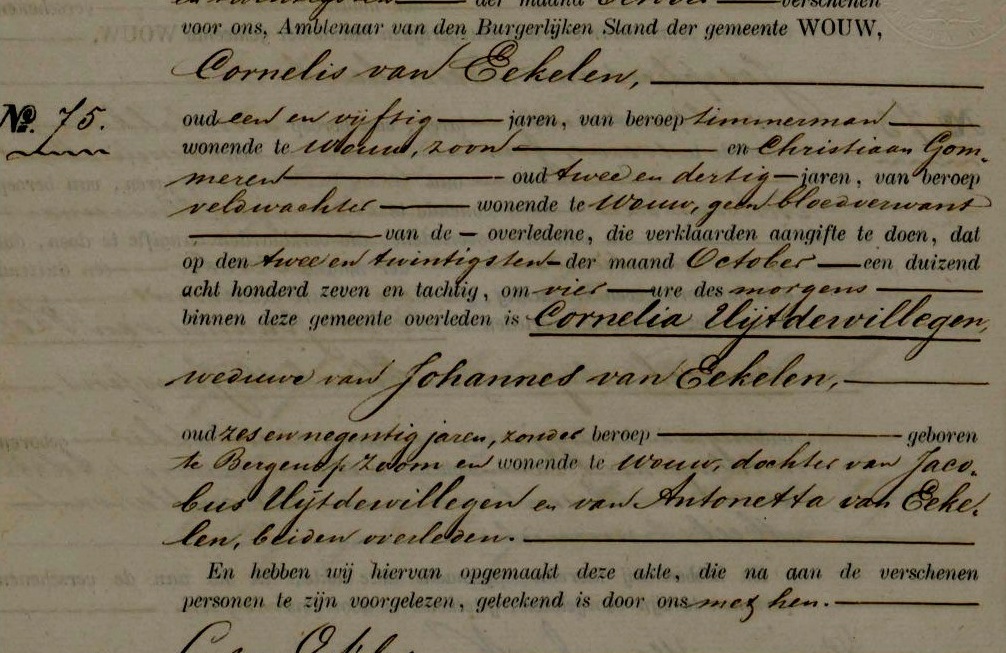 der maand October verschenen
voor ons, Ambtenaar van den Burgerlijken Stand der gemeente WOUW,
Cornelis van Eekelen,
No. 75.
oud een en vijftig jaren, van beroep timmerman
wonende te Wouw, zoon en Christiaan Gom-
meren oud twee en dertig jaren, van beroep
veldwachter wonende te Wouw, geen bloedverwant
van de overledene, die verklaarden aangifte te doen, dat
op den twee en twintigsten der maand October een duizend
acht honderd zeven en tachtig, om vier ure des morgens
binnen deze gemeente overleden is Cornelia Uijtdewillegen,
weduwe van Johannes van Eekelen,
oud zes en negentig jaren, zonder beroep geboren
te Bergen op Zoom en wonende te Wouw, dochter van Jaco-
bus Uijtdewillegen en van Antonetta van Eeke-
len, beiden overleden.
En hebben wij hiervan opgemaakt deze akte, die na aan de verschenen
personen te zijn voorgelezen, geteekend is door ons met hen.